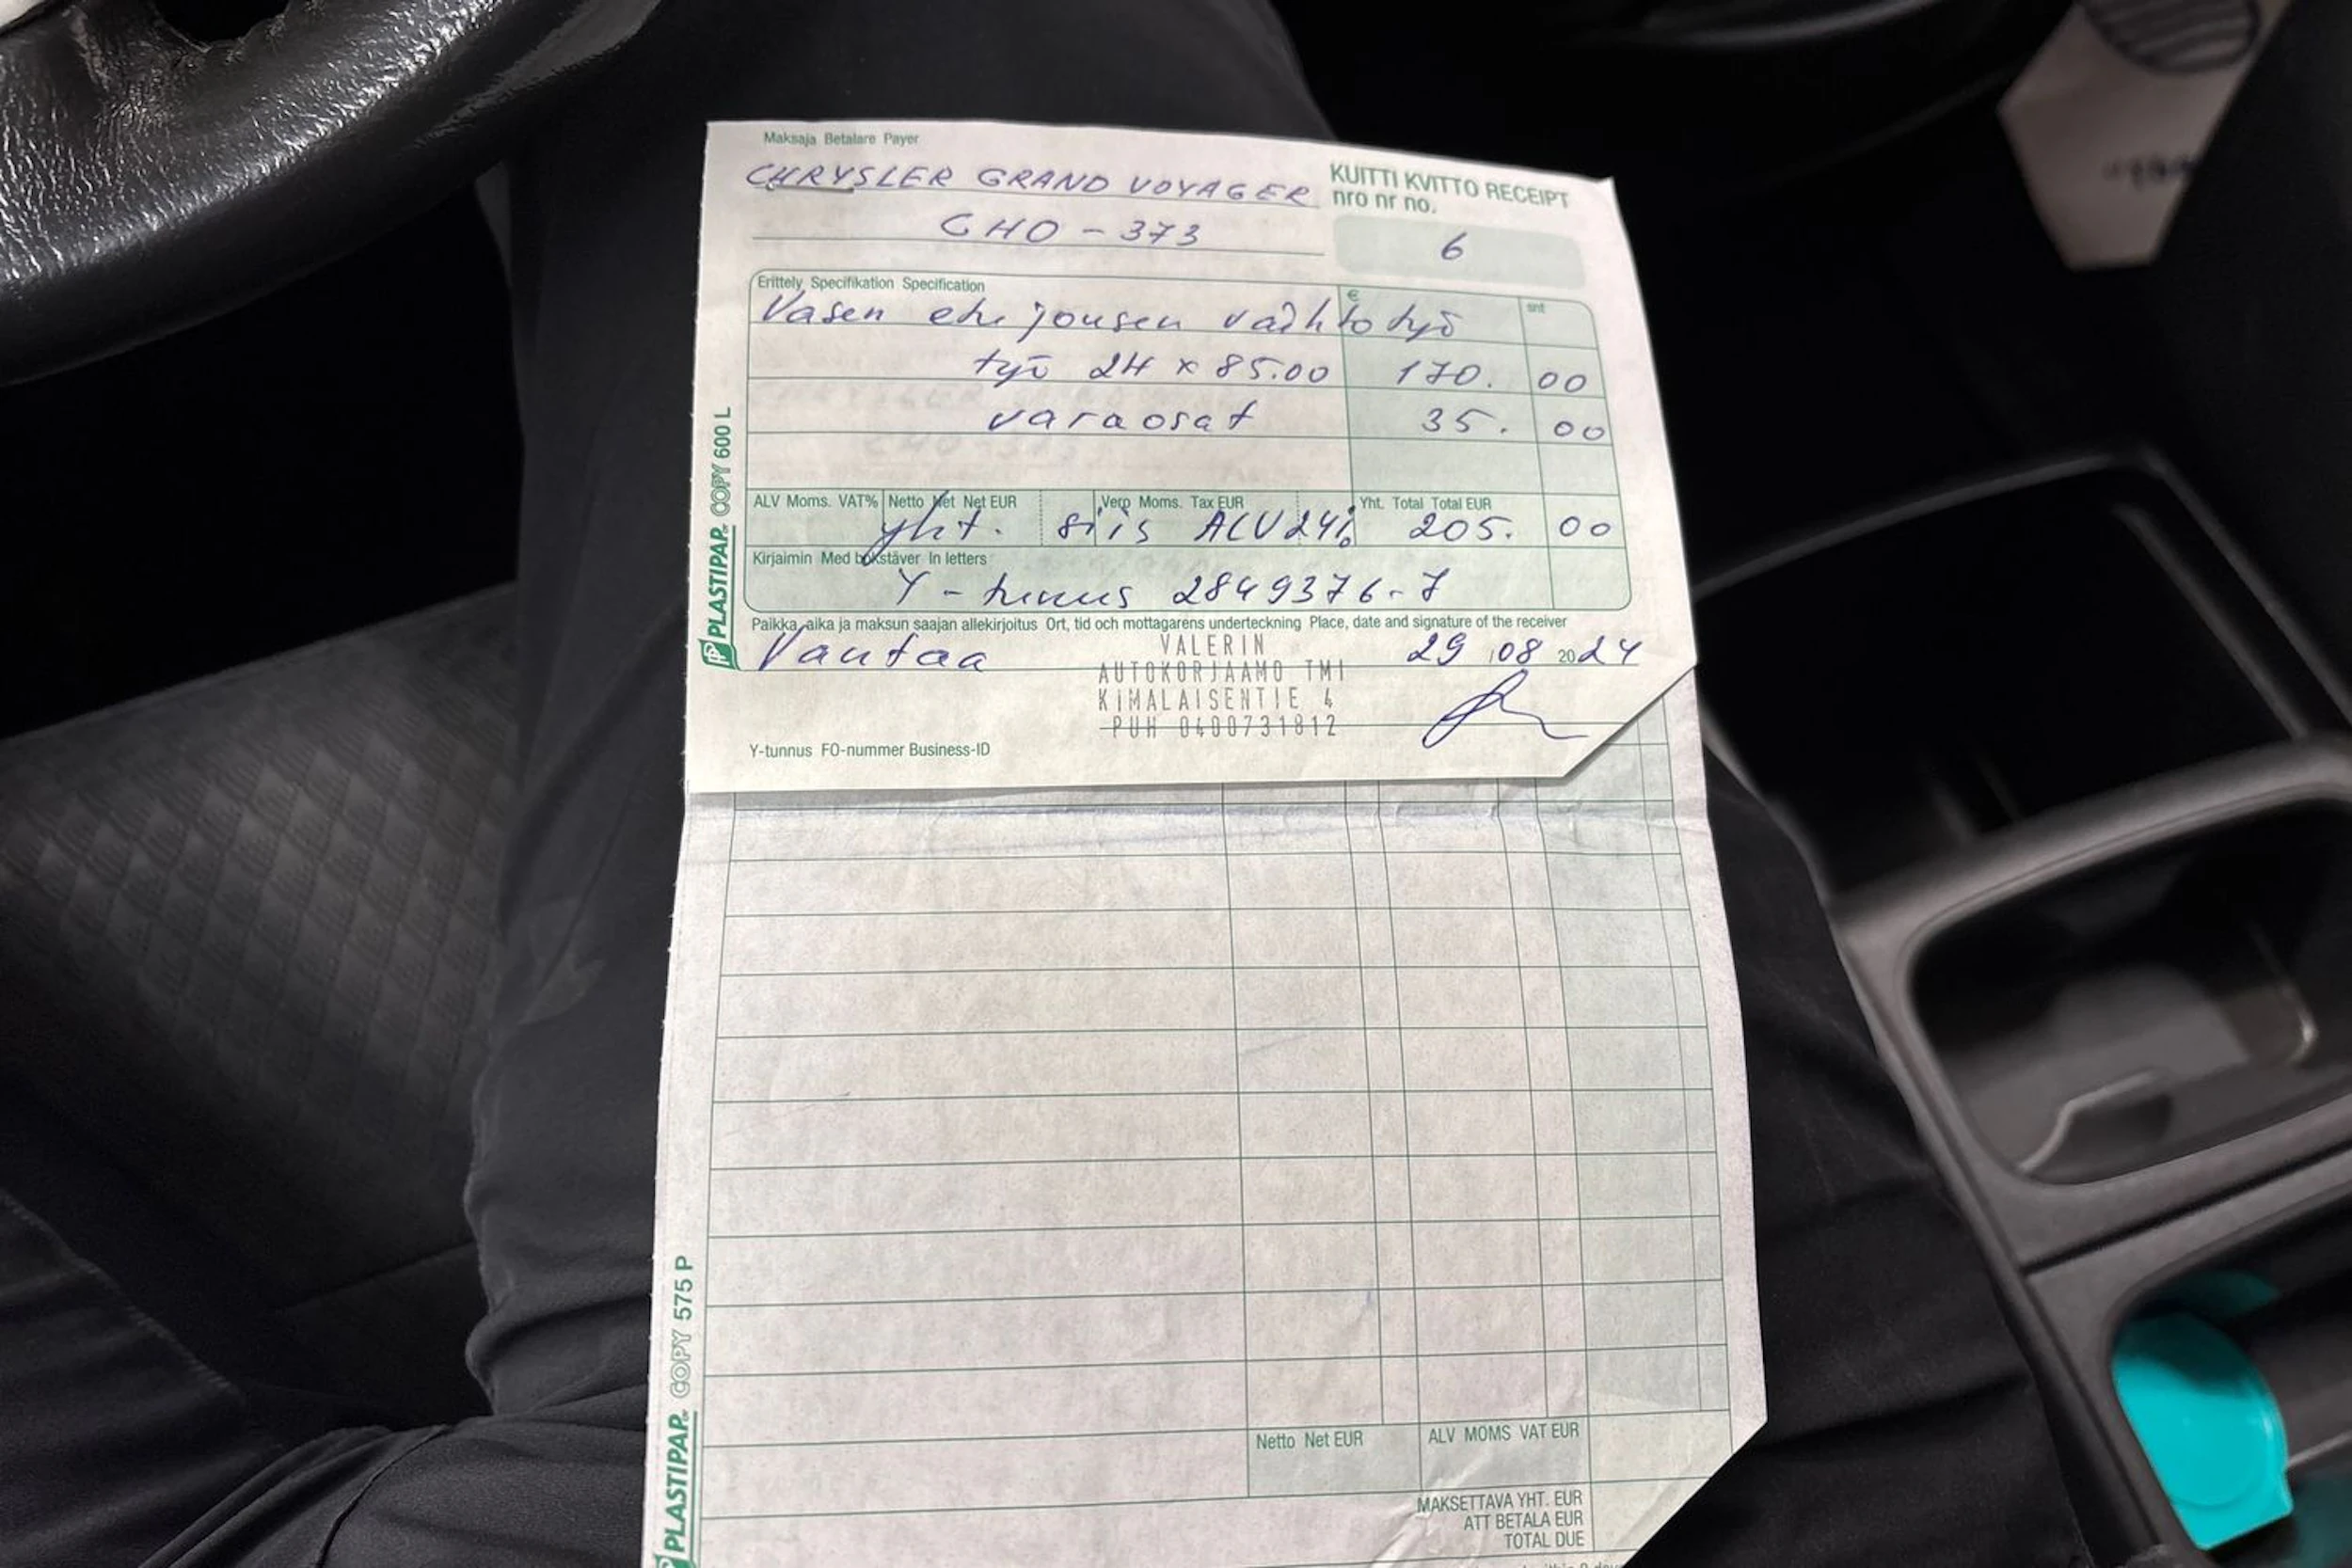 Maksaja Betalare Payer
CHRYSLER GRAND VOYAGER
KUITTI KVITTO RECEIPT
nro nr no.
GHO - 373
6
Erittely Specifikation Specification
€
snt
Vasen etu jousen vaihto työ
työ 2H x 85.00 170. 00
varaosat 35. 00
ALV Moms. VAT% Netto Net Net EUR Verp Moms. Tax EUR Yht. Total Total EUR
yht. siis ALV 24% 205. 00
Kirjaimin Med bokstäver In letters
Y-tunnus 2849376-7
Paikka, aika ja maksun saajan allekirjoitus Ort, tid och mottagarens underteckning Place, date and signature of the receiver
Vantaa 29 08 2024
VALERIN
AUTOKORJAAMO TMI
KIMALAISENTIE 4
PUH 0400731812
Y-tunnus FO-nummer Business-ID
PLASTIPAP COPY 600 L
Netto Net EUR ALV MOMS VAT EUR
MAKSETTAVA YHT. EUR
ATT BETALA EUR
TOTAL DUE
PLASTIPAP COPY 575 P